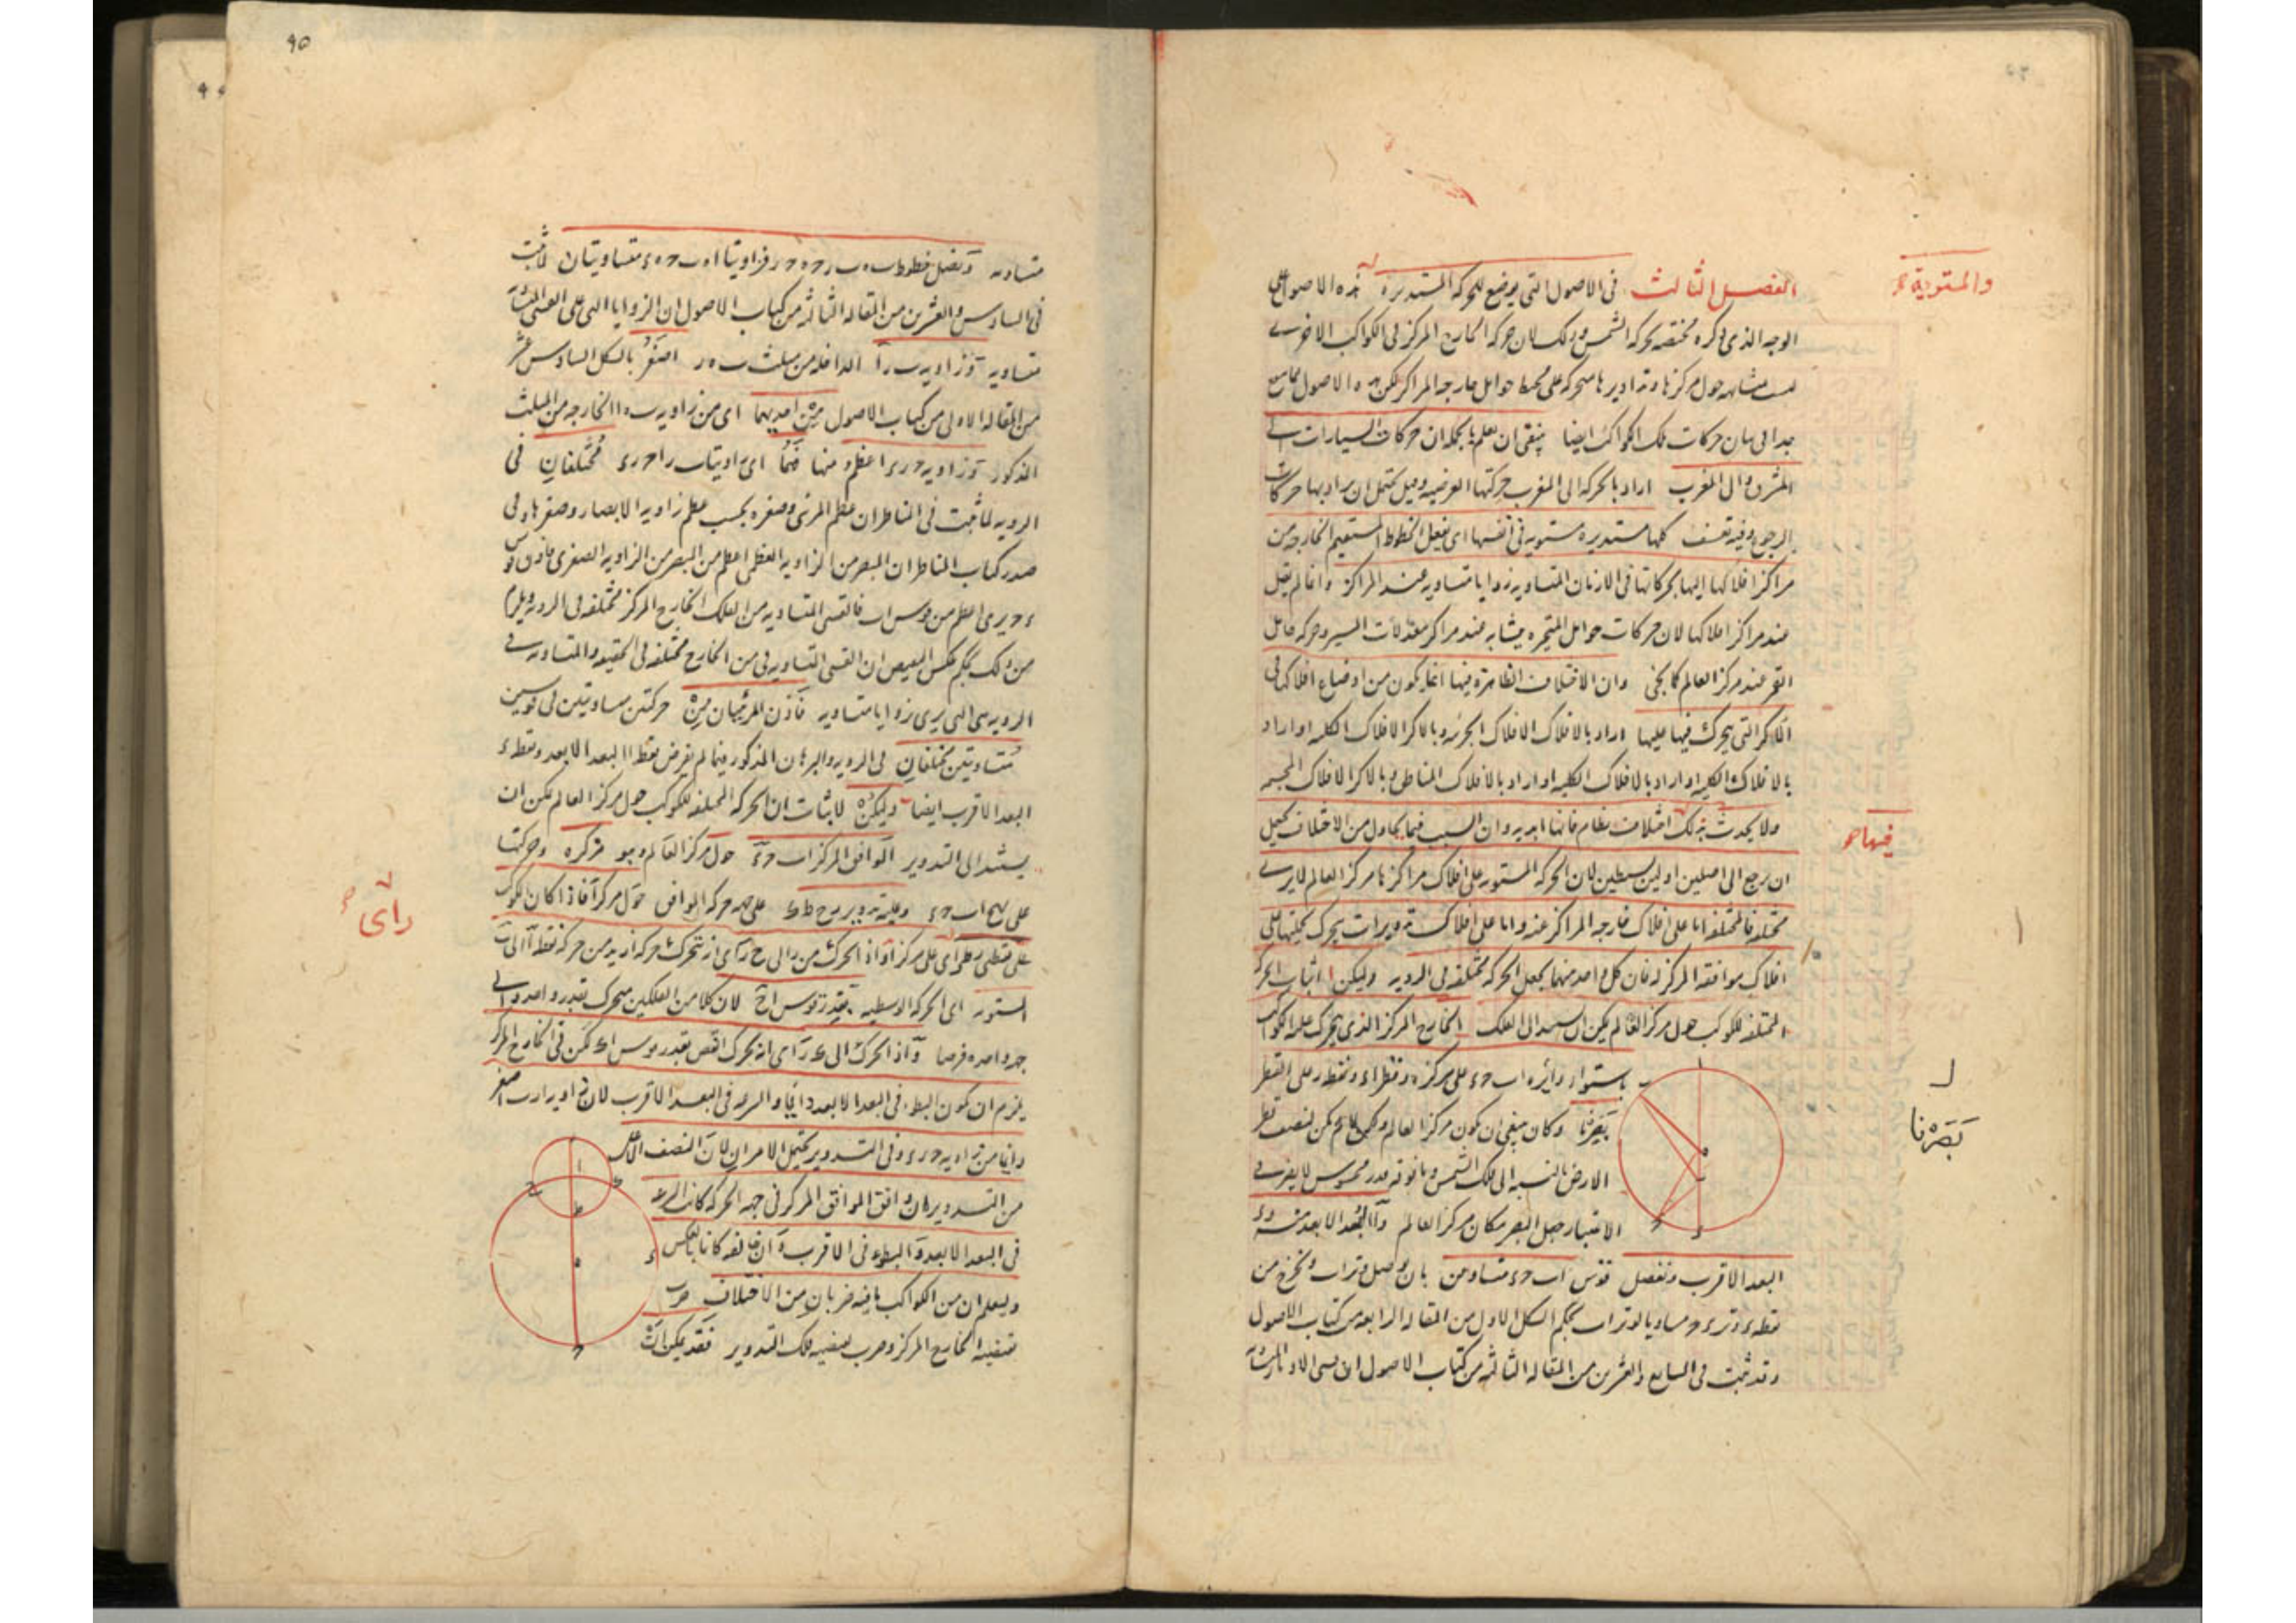 والمستوية
الفصل الثالث في الاصول التي يوضع للحركة المستديرة هذه الاصول على
الوجه الذي ذكره مختصه بحركة الشمس وذلك لان حركة الخارج المركز في الكواكب الاخرى
ليست متشابهة حول مركزها وتداويرها متحركة على محيط حوامل خارجة المراكز لكن هذه الاصول
جدا في بيان حركات تلك الكواكب ايضا ينبغي ان يعلم بالجملة ان حركات السيارات الى
المشرق والى المغرب اراد بالحركة الى المغرب حركتها العرضية وقيل يحتمل ان يراد بها حركات
الرجوع وفيه تعسف كلها مستديرة مستوية في انفسها اي يفعل الخطوط المستقيمة الخارجة من
مراكز افلاكها اليها بحركاتها في الازمان المتساوية زوايا متساوية عند المراكز وانما لم يقل
عند مراكز افلاكها لان حركات حوامل المتحيرة يتشابه عند مراكز معدلات المسير وحركة حامل
القمر عند مركز العالم كما يجئ وان الاختلاف الظاهرة فيها انما يكون من اوضاع افلاكها في
الاكر التي يتحرك فيها عليها اراد بالافلاك الافلاك الجزئية وبالاكر الافلاك الكلية او اراد
بالافلاك الكلية او اراد بالافلاك المناطق وبالاكر الافلاك المجسمة
ولا يحدث بذلك اختلاف نظام فانها ابدية وان السبب فيما يحاول من الاختلاف يحتمل
فيها
ان يرجع الى اصلين اولين بسيطين لان الحركة المستوية على افلاك مراكزها مركز العالم لا يرى
مختلفة فالمختلفة اما على افلاك خارجة المراكز عنه واما على افلاك تدويرات يتحرك بكليتها على
افلاك موافقة المركز له فان كل واحد منهما يجعل الحركة مختلفة في الروية وليكن لاثبات الحركة
المختلفة للكوكب حول مركز العالم يمكن ان يستند الى الفلك الخارج المركز الذي يتحرك عليه الكوكب
باستواء دائرة اب ج د على مركز ه وقطر اد ونقطة ر على القطر
بصرنا وكان ينبغي ان يكون مركز العالم
بصرنا
الارض بالنسبة الى فلك الشمس وما فوقه قدر محسوس لا يضر في
الاعتبار جعل البصر مكان مركز العالم و ا البعد الابعد منه و د
البعد الاقرب ونفصل قوسي اب ج د متساويتين بان يوصل وتر اب ونخرج من
نقطة د وتر د ج مساويا لوتر اب بحكم الشكل الاول من المقالة الرابعة من كتاب الاصول
وقد ثبت في السابع والعشرين من المقالة الثالثة من كتاب الاصول ان قسي الاوتار
متساوية ونصل خطوط فزاويتا متساويتان لما ثبت
في السادس والعشرين من المقالة الثالثة من كتاب الاصول ان الزوايا التي على القسي
متساوية وزاوية ب ر ا الداخلة من مثلث ب ه ر اصغر بالشكل السادس عشر
من المقالة الاولى من كتاب الاصول من احديهما اي من زاوية ب ه ا الخارجة من المثلث
المذكور وزاوية ج ر د اعظم منها فهما اي زاويتا ب ر ا ج ر د مختلفتان في
الروية لما ثبت في المناظر ان عظم المرئي وصغره بحسب عظم زاوية الابصار وصغرها وفي
صدر كتاب المناظر ان المبصر من الزاوية العظمى اعظم من المبصر من الزاوية الصغرى فاذن قوس
د ج يرى اعظم من قوس اب فالقسي المتساوية من الفلك الخارج المركز مختلفة في الروية ويلزم
من ذلك بحكم عكس النقيض ان القسي المتساوية في من الخارج مختلفة في الحقيقة والمتساوية في
الروية هي التي يرى بزوايا متساوية فاذن المرئيتان من حركتين متساويتين في قوسين
متساويتين مختلفتان في الروية والبرهان المذكور فيما لم يفرض نقطة ا البعد الابعد ونقطة د
البعد الاقرب ايضا وليكن لاثبات ان الحركة المختلفة للكوكب حول مركز العالم يمكن ان
يستند الى التدوير الموافق المركز اب ج د حول مركز العالم وهو مركزه وحركتها
على نهج اب ج د وعليه تدوير ر ح ط ك على جهة حركة الموافق حول مركز ا فاذا كان الكوكب
راى
على نقطتي ر ط راى على مركز ا واذا تحرك من ر الى ح راى انه يتحرك حركة ازيد من حركة نقطة ا الى ب
المستوية اي الحركة الوسطية بقدر قوس ا ح لان كلا من الفلكين متحرك بقدر واحد والى
جهة واحدة فرضا واذا تحرك الى ك راى انه يتحرك انقص بقدر قوس ا ك لكن في الخارج المركز
يلزم ان يكون البطء في البعد الابعد دائما والسرعة في البعد الاقرب لان زاوية ا ر ب اصغر
دائما من زاوية ج ر د وفي التدوير يحتمل الامران لان النصف الاعلى
من التدوير ان وافق الموافق المركز في جهة الحركة كانت السرعة
في البعد الابعد والبطوء في الاقرب وان خالفه كانا بالعكس
وليعلم ان من الكواكب ما فيه ضربان من الاختلاف ضرب
يقتضيه الخارج المركز وضرب يقتضيه فلك التدوير فقد يمكن ان